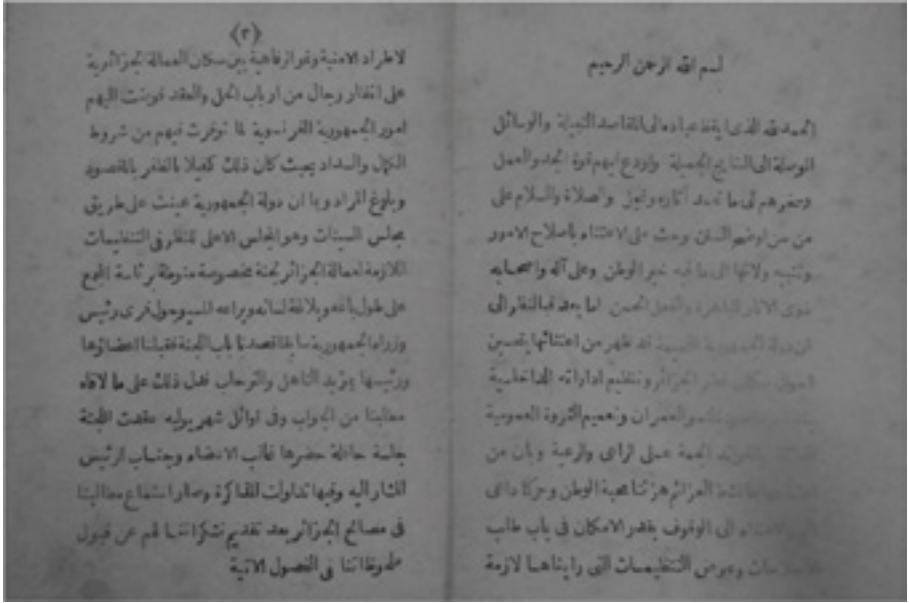 بسم الله الرحمن الرحيم
الحمد لله الذى ايقظ عباده الى المقاصد النبيلة والوسائل
الموصلة الى النتايج الجميلة واودع فيهم قوة الجد والعمل
وحفزهم الى ما تحمد آثاره وتجل والصلاة والسلام على
من سن اوضح السنن وحث على الاعتناء باصلاح الامور
وتنبيه ولاتها الى ما فيه خير الوطن وعلى آله واصحابه
ذوى الاثار الباهرة والفعل الحسن اما بعد فبالنظر الى
ان دولة الجمهورية قد ظهر من اعتنائها بتحسين
احوال سكان قطر الجزائر وتنظيم اداراته الداخلية
والعمران وتعميم الثروة العمومية
الجمة على الراعى والرعية وبان من
العزائم هزتنا محبة الوطن وحركنا داعى
الى الوقوف بقدر الامكان فى باب طلب
وعرض التنظيمات التى رايناها لازمة
(٣)
لاطراد الامنية وتوافر فاهية بين سكان العمالة الجزائرية
على انظار رجال من ارباب الحل والعقد فوضت اليهم
امور الجمهورية الفرنسوية لما توفرت فيهم من شروط
الكمال والسداد بحيث كان ذلك كفيلا بالظفر بالمقصود
وبلوغ المراد وبما ان دولة الجمهورية عينت على طريق
مجلس السينات وهو المجلس الاعلى للنظر فى التنظيمات
اللازمة لعمالة الجزائر لجنة مخصوصة منوطة برئاسة
على طول باعه وبلاغة لسانه ويراعه المسيو جول فرى رئيس
وزراء الجمهورية سابقا قصدنا باب اللجنة فقبلنا اعضاؤها
ورئيسها بمزيد التاهل والترحاب فدل ذلك على ما لاقاه
مطالبنا من الجواب وفى اوائل شهر يوليه عقدت اللجنة
جلسة حافلة حضرها غالب الاعضاء وجناب الرئيس
المشار اليه وفيها تداولت المذاكرة وصار استماع مطالبنا
فى مصالح الجزائر بعد تقديم تشكراتنا لهم عن قبول
ملحوظاتنا فى الفصول الاتية